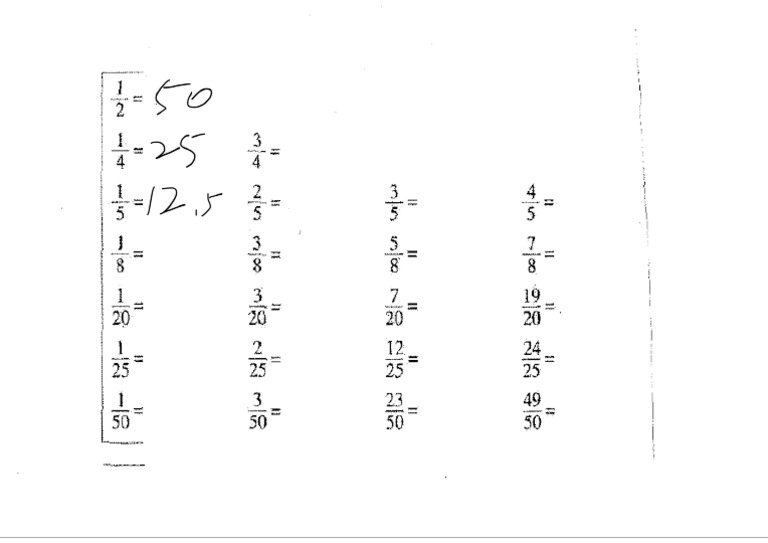 1/2 = 50
1/4 = 25 3/4 =
1/5 = 12.5 2/5 = 3/5 = 4/5 =
1/8 = 3/8 = 5/8 = 7/8 =
1/20 = 3/20 = 7/20 = 19/20 =
1/25 = 2/25 = 12/25 = 24/25 =
1/50 = 3/50 = 23/50 = 49/50 =